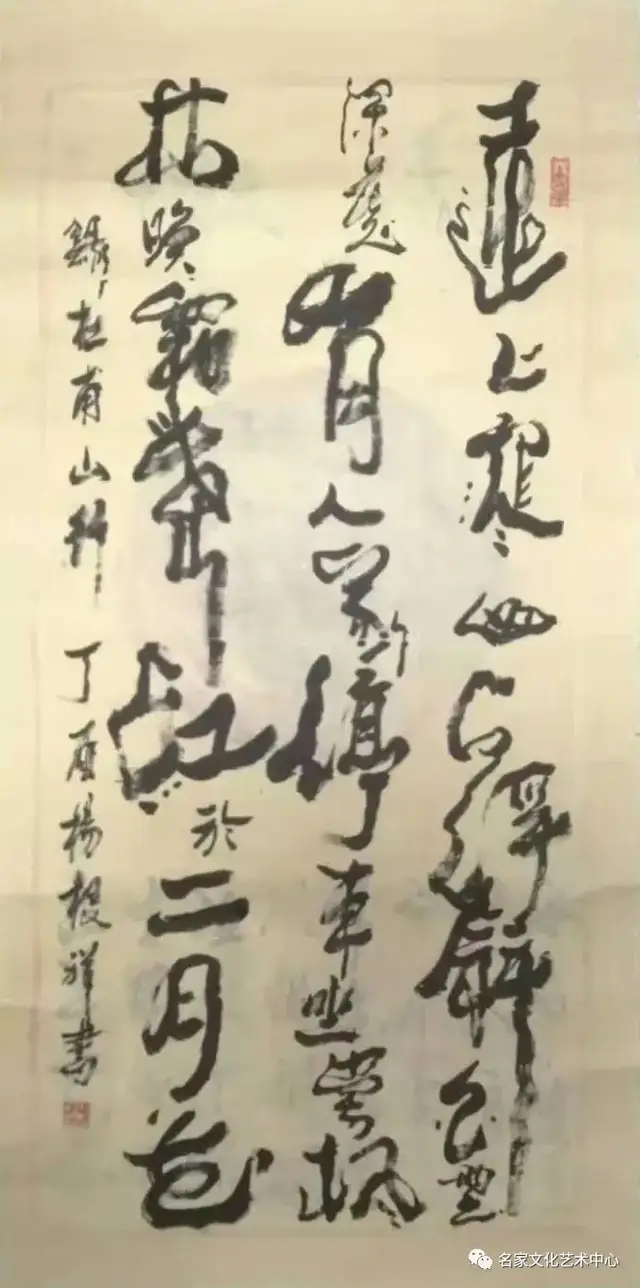 遠上寒山石徑斜白雲
深處有人家停車坐愛楓
林晚霜葉紅於二月花
錄杜甫山行 丁酉楊祥書
名家文化艺术中心